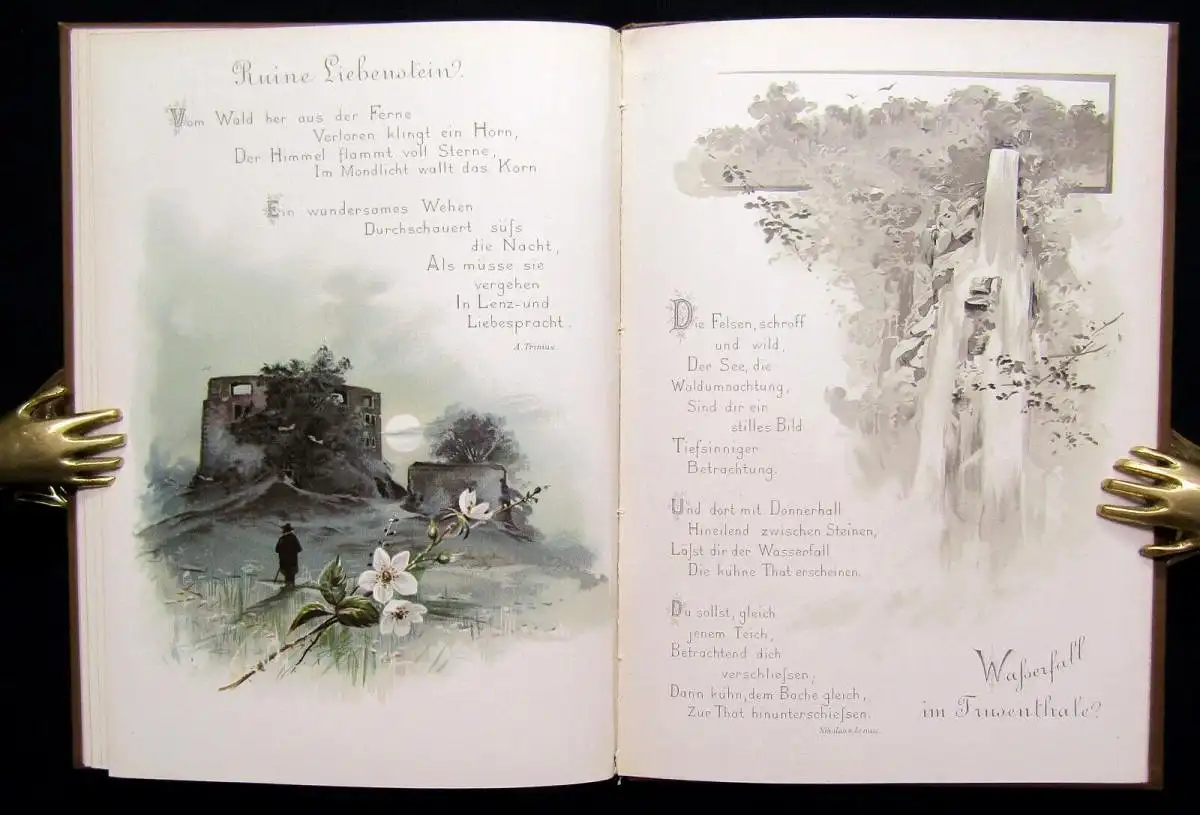 Ruine Liebenstein.
Vom Wald her aus der Ferne
Verloren klingt ein Horn,
Der Himmel flammt voll Sterne,
Im Mondlicht wallt das Korn
Ein wundersames Wehen
Durchschauert süſs
die Nacht,
Als müsse sie
vergehen
In Lenz- und
Liebespracht.
A. Trinius.
Die Felsen, schroff
und wild,
Der See, die
Waldumnachtung,
Sind dir ein
stilles Bild
Tiefsinniger
Betrachtung.
Und dort mit Donnerhall
Hineilend zwischen Steinen,
Läſst dir der Wasserfall
Die kühne That erscheinen.
Du sollst, gleich
jenem Teich,
Betrachtend dich
verschlieſsen;
Dann kühn, dem Bache gleich,
Zur That hinunterschiessen.
Nikolaus Lenau.
Waſserfall
im Trusenthale.